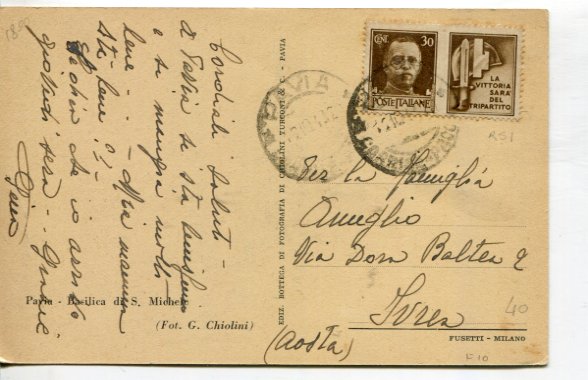 1800
Cordiali saluti -
di Pavia si sta benissimo
e si mangia molto
bene - - - Mia mamma
sta bene o?
che io arrivo
giovedì sera -
Gina
Pavia - Basilica di S. Michele
(Fot. G. Chiolini)
EDIZ. BOTTEGA DI FOTOGRAFIA DI CHIOLINI TURCONI & C. - PAVIA
CENT. 30
POSTE ITALIANE
LA
VITTORIA
SARÀ
DEL
TRIPARTITO
PAVIA
RSI
Per la famiglia
Ameglio
Via Dora Baltea 2
Ivrea
(Aosta)
40
FUSETTI - MILANO
F10